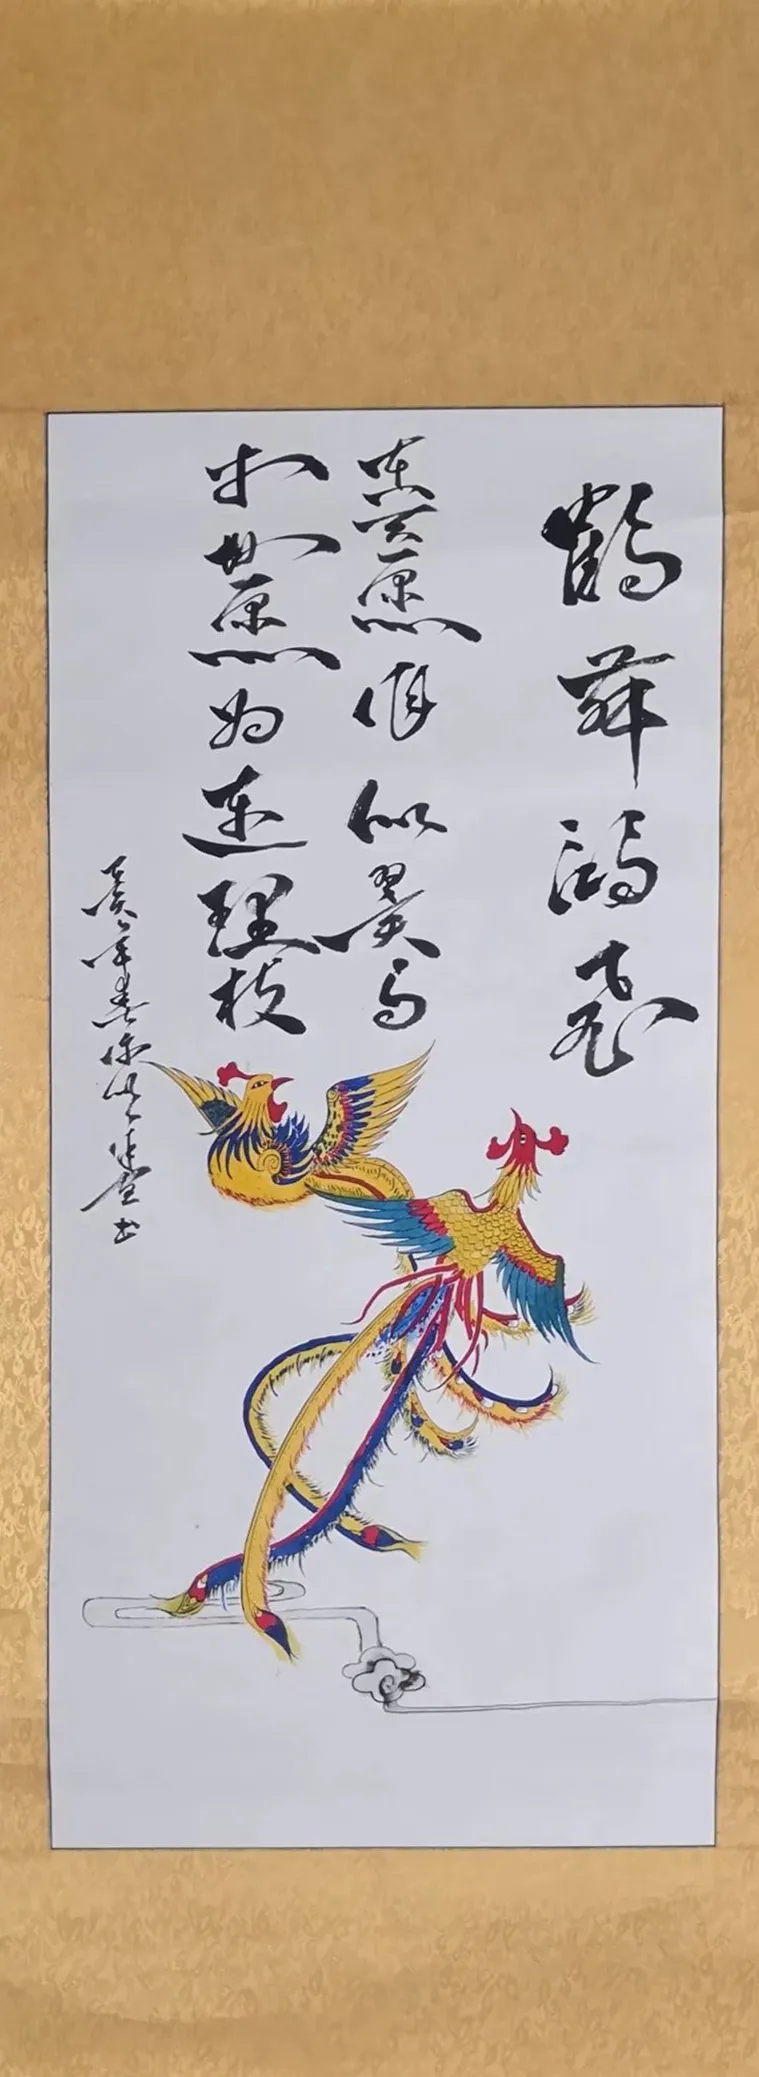 鹤舞鸿飞
在天愿作比翼鸟
在地愿为连理枝
癸卯年春
书